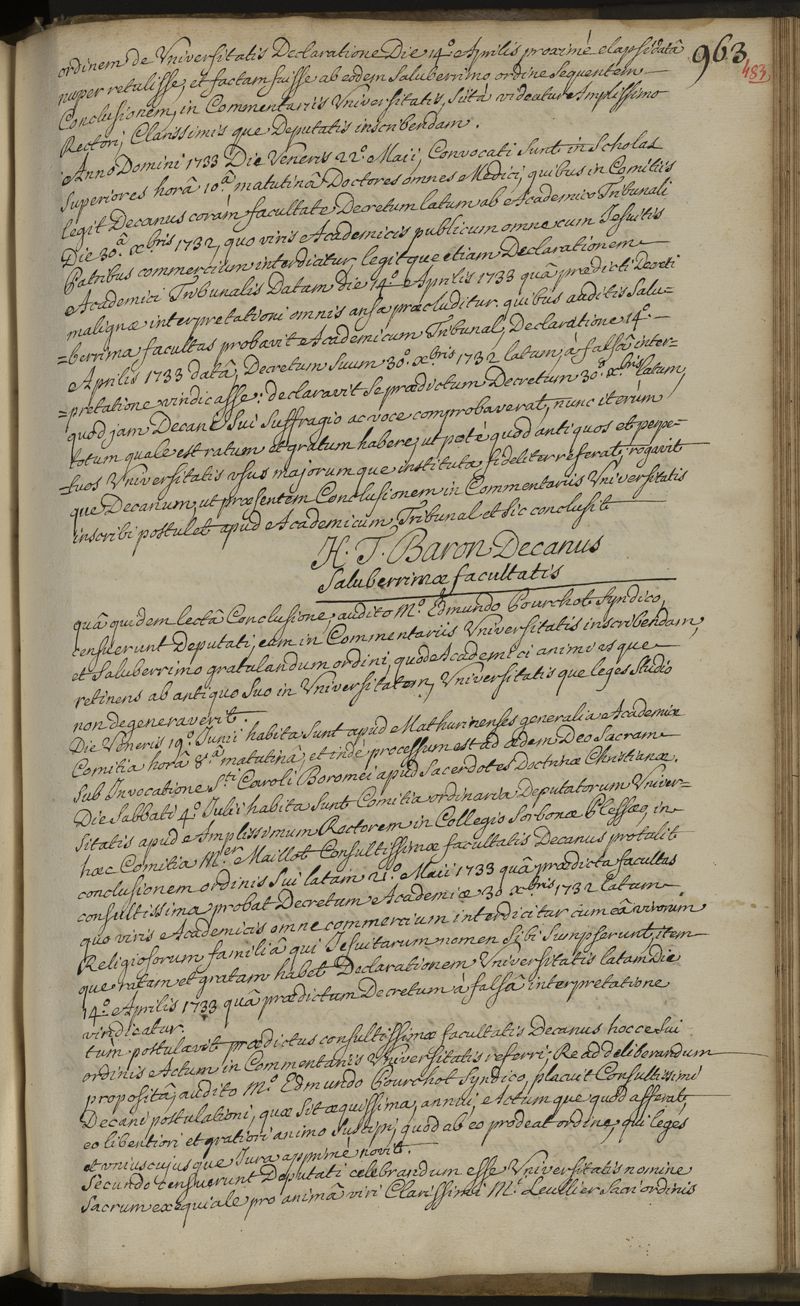 963
483
ordinem de Universitatis Declaratione Die 14.º Aprilis proximè elapsi datâ
nuper retulisse, et factam fuisse ab eodem Saluberrimo ordine Sequentem
Conclusionem, in Commentariis Universitatis, si ita videatur Amplissimo
Rectori, Clarissimis que Deputatis inscribendam.
Anno Domini 1733 Die Veneris 22.º Maii, Convocati Sunt in Scholas
Superiores horâ 10.ª matutinâ Doctores omnes Medici, quibus in Comitiis
legit Decanus coram facultate Decretum latum ab Academico Tribunali
Die 30.ª xbris 1732, quo viris Academicis publicum omne cum Jesuitis
Patribus commercium interdicitur, legit que etiam Declarationem
Academici Tribunalis Datam Die 14.º Aprilis 1733 quâ prædicti Decreti
malignæ interpretationi omnis ansa præcluditur. quibus auditis Salu=
=berrima facultas probavit Academicum Tribunal, Declaratione 14.ª
Aprilis 1733 datâ, Decretum Suum 30.º xbris 1732 latum, à falsâ inter=
=pretatione vindicasse: declaravit Se prædictum Decretum 30.º xbris latum,
quod jam Decani Sui Suffragio ac voce comprobaverat, nunc iterùm
totum quale est ratum et gratum habere, ut potè quod antiquos et perpe=
=tuos Universitatis usus majorumque instituta fideliter referat, rogavit
que Decanum, ut præsentem Conclusionem in Commentariis Universitatis
inscribi postulet apud Academicum Tribunal et sic conclusit
H. T. Baron Decanus
Saluberrimæ facultatis
quâ quidem lectâ Conclusione, audito M.º Edmundo Pourchot Syndico,
censuerunt Deputati, eam in Commentariis Universitatis inscribendam,
et Saluberrimo gratulandum ordini, quod Academici animi es que
retinens ab antiquo Suo in Universitatem, Universitatis que leges Studio
non degeneraverit.
Die Veneris 19.º Junii habita Sunt apud Mathurinenses generalia Academiæ
Comitia horâ 8.ª matutinâ, et indè processum est ad ædem Deo Sacram
Sub Invocatione Sti Caroli Boromei apud Sacerdotes Doctrinæ Christianæ.
Die Sabbati 4.º Julii habita Sunt Comitia ordinaria Deputatorum Univer=
sitatis apud Amplissimum Rectorem in Collegio Sorbonæ Plessæo, in
hæc Comitia Mer Maillot Consultissimæ facultatis Decanus protulit
conclusionem ordinis Sui latam 21.º Maii 1733 quâ prædicta facultas
consultissima probat Decretum Academiæ 30 xbris 1732 Latum
quo viris Academicis omne commercium interdicitur cum eâ virorum
Religiosorum familiâ qui Jesuitarum nomen Sibi Sumpserunt, item
que ratam et gratam habet Declarationem Universitatis latam Die
14.º Aprilis 1733 quâ prædictum Decretum à falsâ interpretatione
vindicatur.
tùm postulavit prædictus consultissimæ facultatis Decanus hocce Sui
ordinis Actum in Commentariis Universitatis referri; Re ad deliberandum
propositâ, audito M.º Edmundo Pourchot Syndico, placuit Consultissimi
Decani postulationi, quæ Sit æquissima, annui, Actumque quod afferat,
eo libentiori et gratiori animo Suscipi, quod ab eo prodeat ordine, qui leges
et uniuscujusque Jura apprimè novit.
Secundo censuerunt Deputati celebrandum esse Universitatis nomine
Sacrum exequiale pro animâ viri Clarissimi M.i Leullier Sacri ordinis